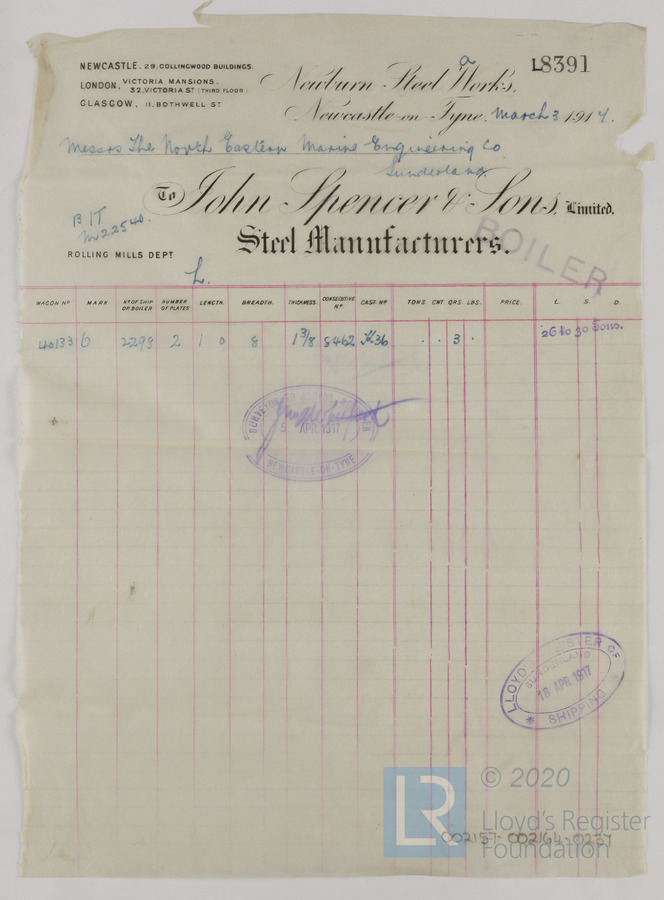 NEWCASTLE. 29. COLLINGWOOD BUILDINGS.
LONDON, VICTORIA MANSIONS. 32, VICTORIA ST (THIRD FLOOR)
GLASGOW, 11, BOTHWELL ST
L8391
a
Newburn Steel Works,
Newcastle-on-Tyne. March 3 1917.
Messrs The North Eastern Marine Engineering Co
Sunderland
To John Spencer & Sons, Limited.
Steel Manufacturers.
BOILER
B IT
M22540.
ROLLING MILLS DEPT
L.
WAGON No MARK No OF SHIP OR BOILER NUMBER OF PLATES LENGTH. BREADTH. THICKNESS. CONSECUTIVE No CAST. No TONS. CWT. QRS. LBS. PRICE. L. S. D.
40133 6 2298 2 1 0 8 1 3/8 8462 36 . . 3 . 26 to 30 Tons.
5 APR. 1917
NEWCASTLE-ON-TYNE
LLOYD'S REGISTER OF SHIPPING
SUNDERLAND
18 APR 1917
LR © 2020
Lloyd's Register
Foundation
002157-002164-0237